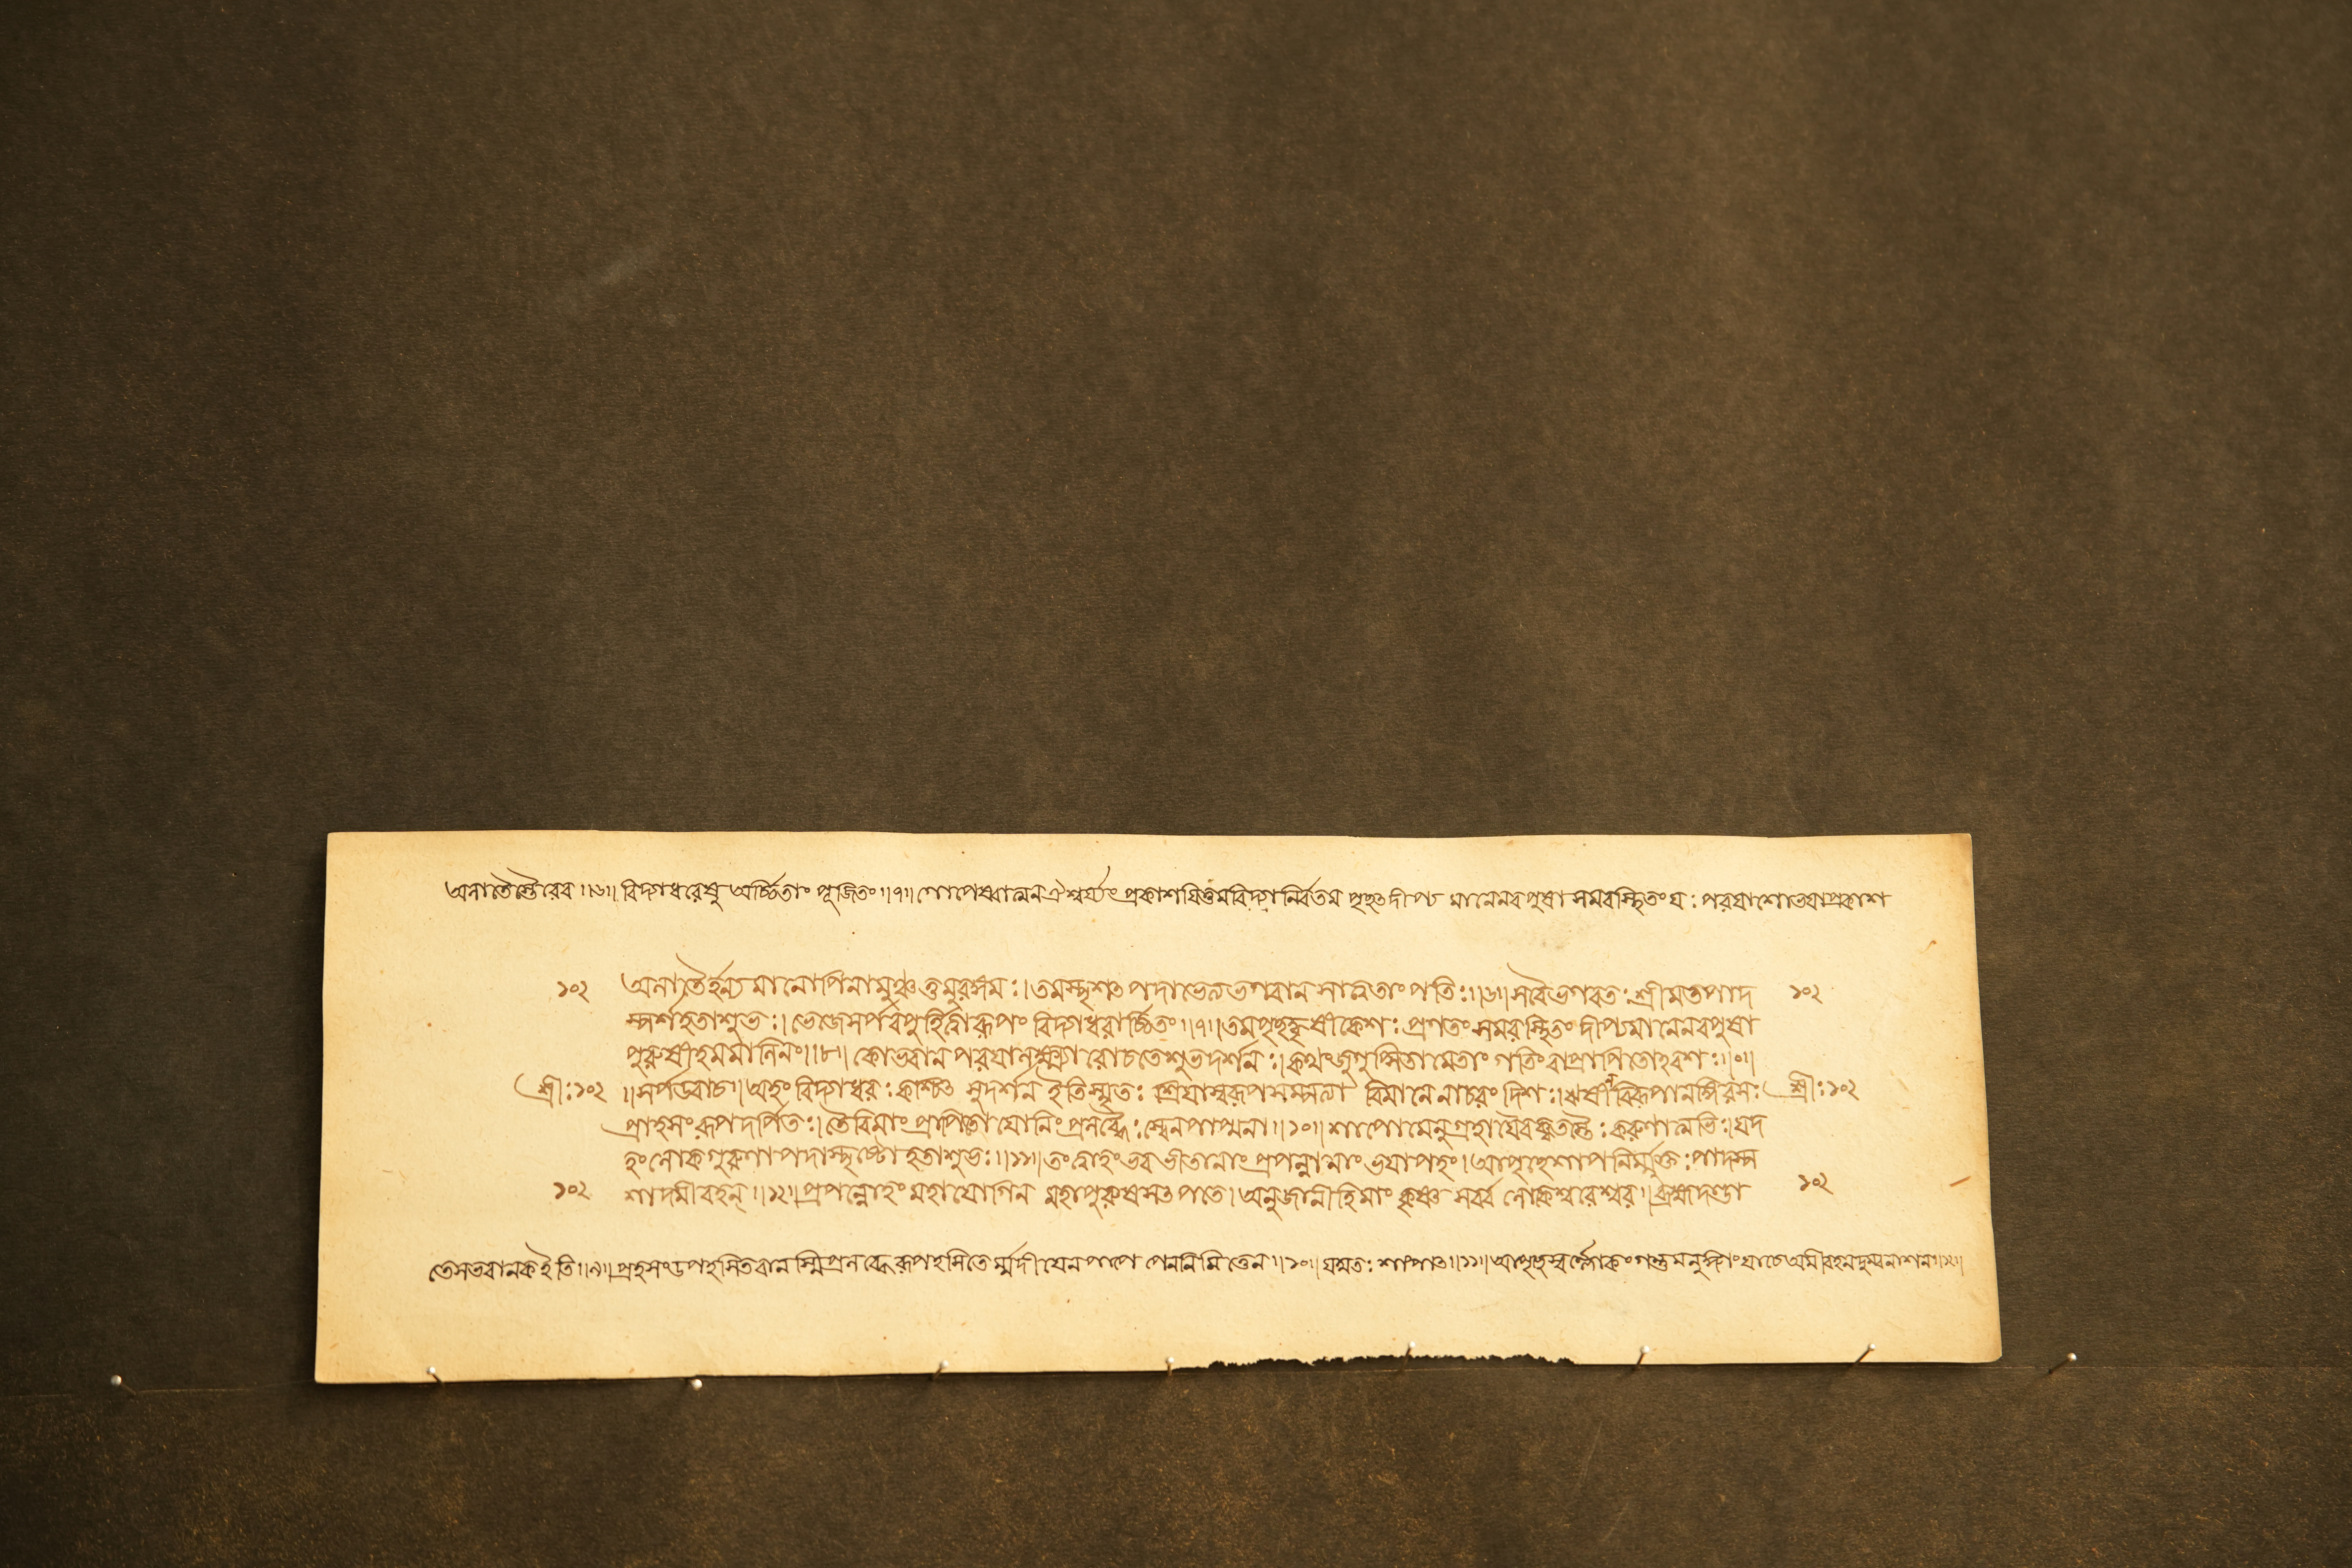 অলাতৈস্তৈরেব ॥৬॥ বিদ্যাধরেষু অর্চ্চিতাং পূজিতং ॥৭॥ গোপেষ্বাত্মন ঐশ্বর্য্যং প্রকাশয়িতুমবিদ্যানির্বতম পৃচ্ছৎ দীপ্য মানেনবপুষা সমবস্থিতংয: পরয়াশোভয়াপ্রকাশ
১০২ অলাতৈর্হন্যমানোপিনামুঞ্চত্তমুরঙ্গম:।তমস্পৃশৎ পদাভ্যেত্যভগবান সাত্বতাং পতি:॥৬॥সবৈভগবত:শ্রীমত্তপাদ ১০২
স্পর্শহতাশুভ:।ভেজেসর্পবপুর্হিত্বারূপং বিদ্যাধরার্চ্চিতং॥৭॥তমপৃচ্ছদ্ধৃষীকেশ: প্রণতং সমবস্থিতং দীপ্যমানেনবপুষা
পুরুষংহেমমালিনং॥৮॥ কোভবান পরয়ালক্ষ্ম্যা রোচতেশুভদর্শন:।কথংজুগুপ্সিতামেতাং গতিংবাপ্রাপিতোহবশ:॥৯॥
শ্রী:১০২ ॥সর্পউবাচ॥অহং বিদ্যাধর: কশ্চিৎ সুদর্শন ইতিস্মৃত: শ্রিয়াস্বরূপসম্পত্ত্যা বিমানে নাচরং দিশ:।ঋষীন্বিরূপানঙ্গিরস: শ্রী:১০২
প্রাহসংরূপদর্পিত:।তৈরিমাং প্রাপিতো যোনিং প্রলব্ধৈ:স্বেনপাপ্মনা॥১০॥শাপোমেনুগ্রহায়ৈবকৃতস্তৈ:করুণাত্মভি:।যদ
হংলোকগুরুণা পদাস্পৃষ্টো হতাশুভ:॥১১॥তংত্বাহংভবভীতানাং প্রপন্নানাং ভয়াপহং।আপৃচ্ছেশাপনির্ম্মুক্ত:পাদস্প
১০২ র্শাদমীবহন্॥১২॥প্রপন্নোহং মহাযোগিন মহাপুরুষসৎপতে।অনুজানীহিমাং কৃষ্ণ সর্বব লোকেশ্বরেশ্বর॥ব্রহ্মদণ্ডা ১০২
তেসভবানকইতি॥৯॥প্রাহসংউপহসিতবানস্মিপ্রলব্ধৈরূপহসিতৈর্ম্মদীয়েনপাপে পেননিমিত্তেন॥১০॥যন্মত: শাপাৎ॥১১॥আপৃচ্ছেস্বর্ল্লোকংগন্তুমনুজ্ঞাংযাচেঅমীবহনদুঃখনাশন॥১২॥